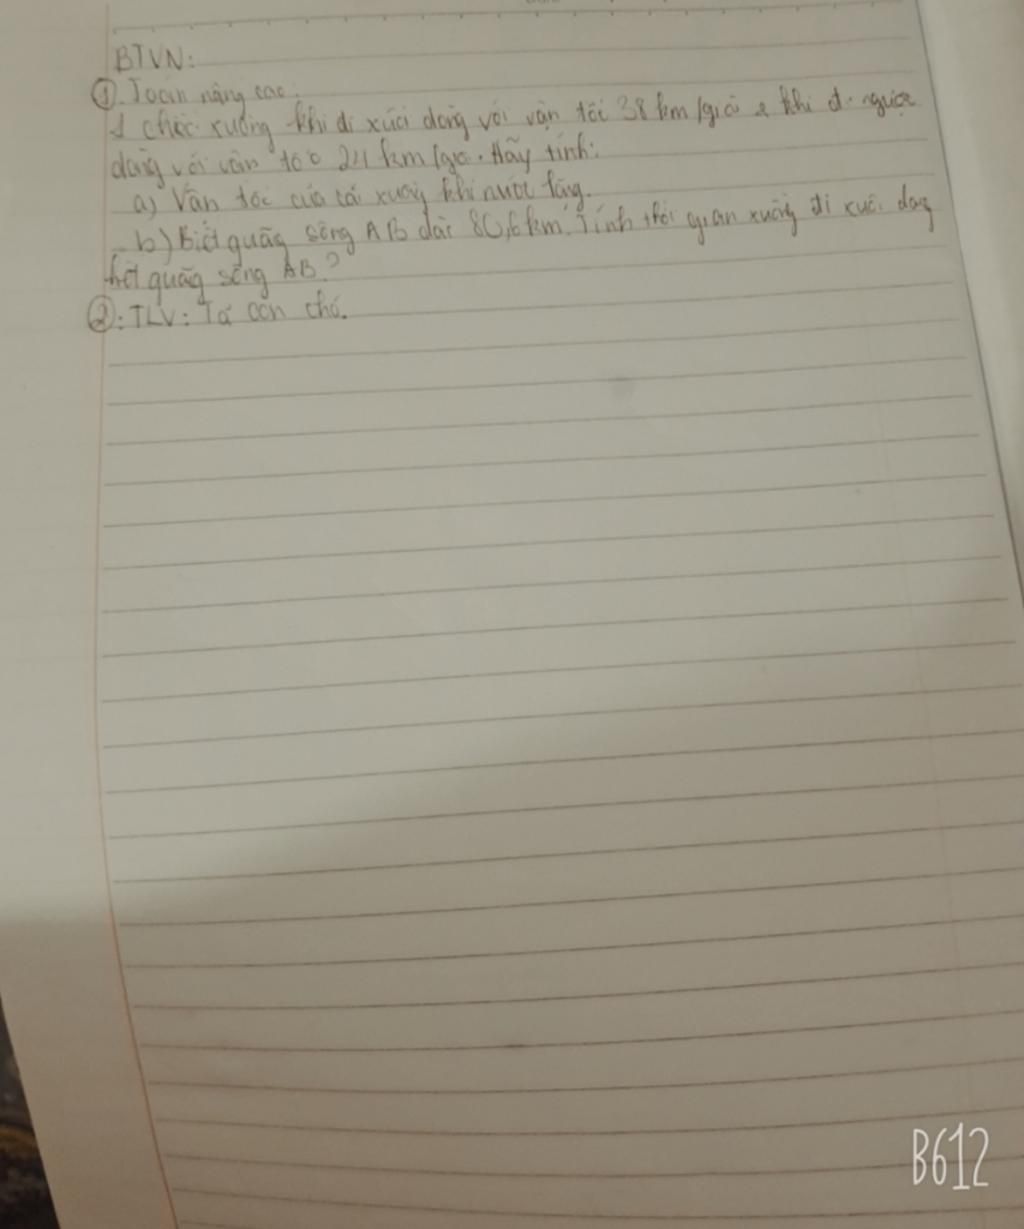 BTVN:
①. Toán nâng cao:
1 chiếc xuồng khi đi xuôi dòng với vận tốc 38 km/giờ & khi đi ngược
dòng với vận tốc 24 km/giờ. Hãy tính:
a) Vận tốc của cái xuồng khi nước lặng.
b) Biết quãng sông AB dài 80,6 km. Tính thời gian xuồng đi xuôi dòng
hết quãng sông AB?
②: TLV: Tả con chó.
B612